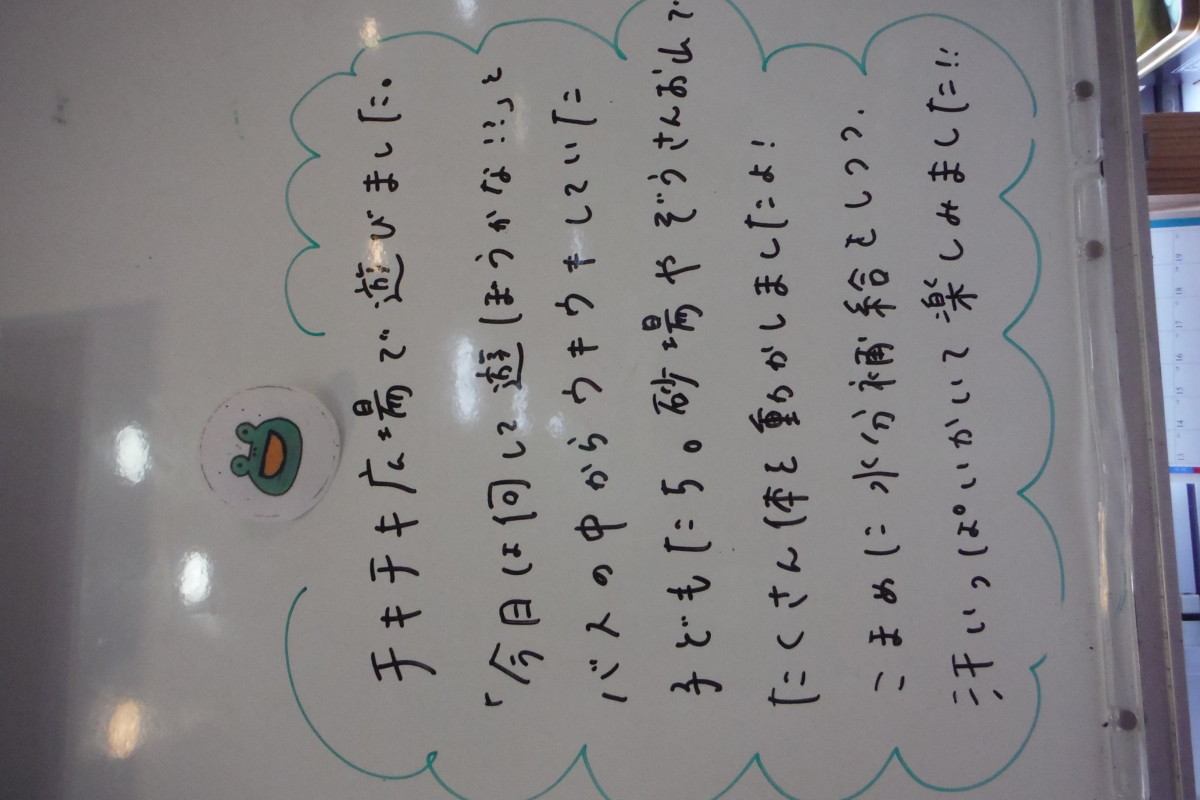 チキチキ広場で遊びました。
「今日は何して遊ぼうかな!?」と
バスの中からウキウキしていた
子どもたち。砂場やぞうさんお山で
たくさん体を動かしましたよ!
こまめに水分補給をしつつ、
汗いっぱいかいて楽しみました!!